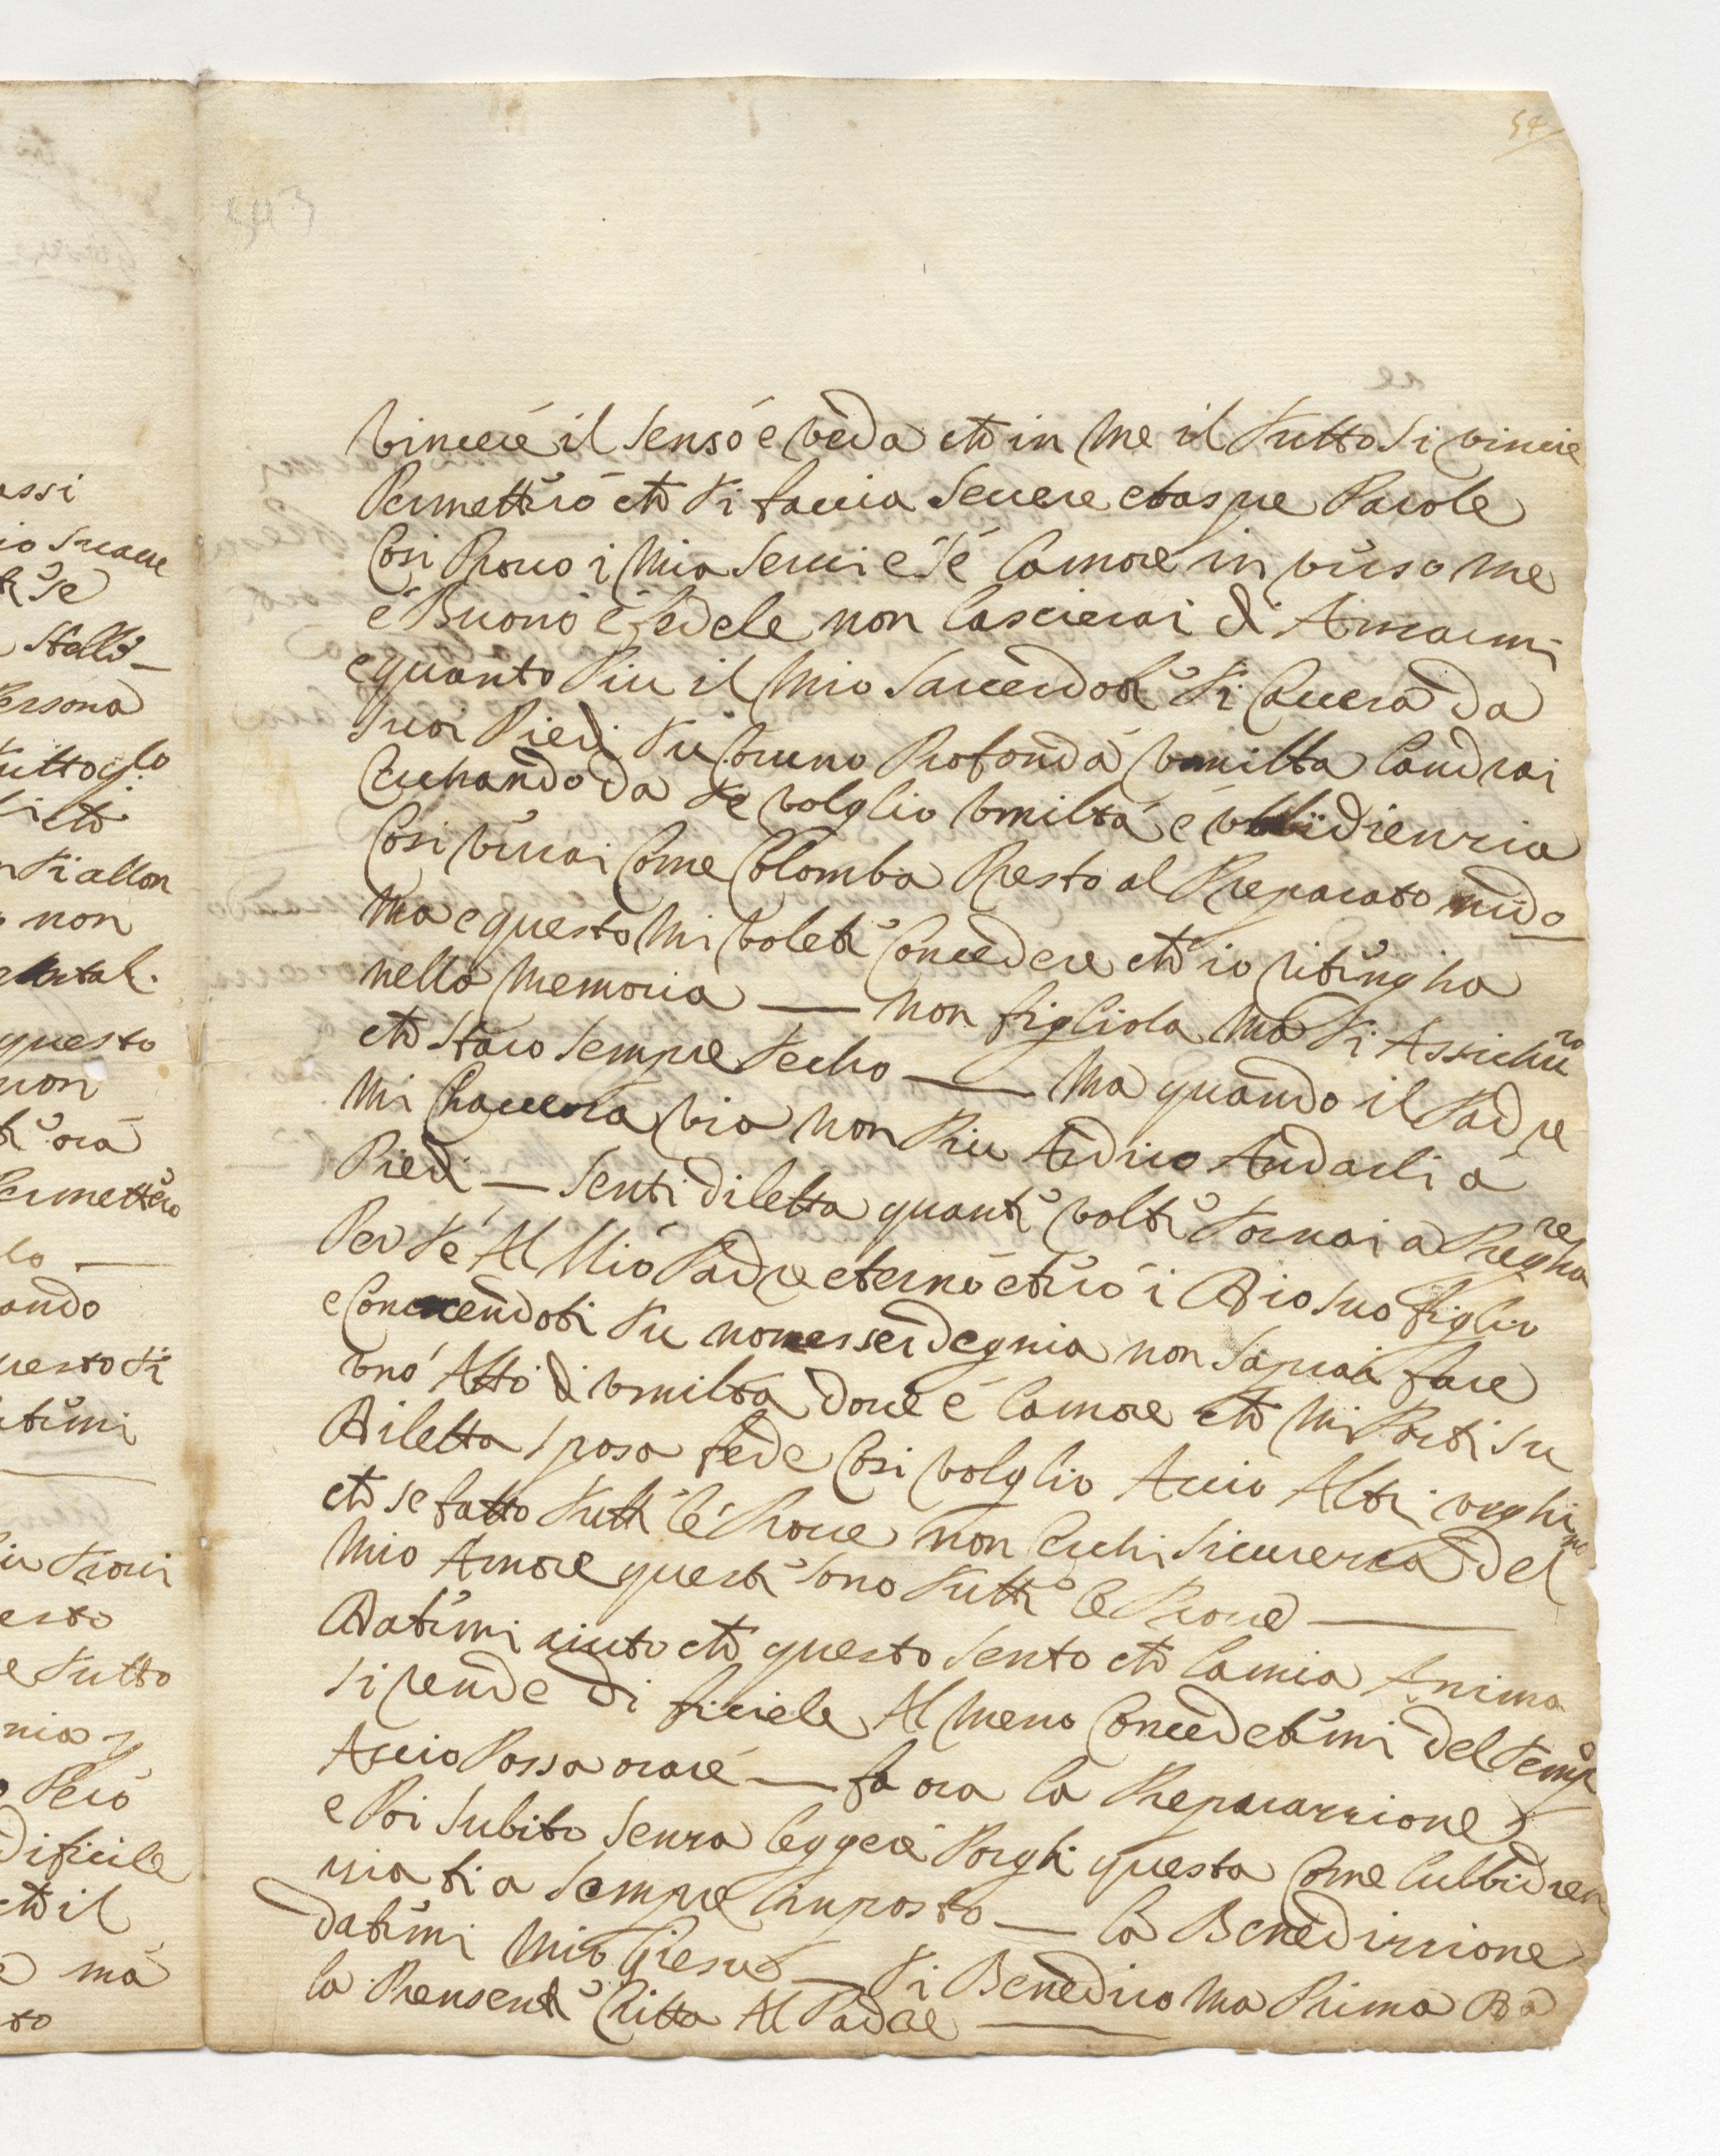 54
543
vincere il senso e veda che in me il tutto si vincie
Permettero che ti faccia severe et aspre Parole
Cosi Provo i Mia servi e se lamore in verso me
e Buono e fedele non lascierai di Amarmi
equanto Piu il Mio sacerdote ti Cacera da
suoi Piedi tu Profonda vmilta landrai
Cerchando da te volglio vmilta e vbbidienzia
Cosi verrai Come Colomba Presto al Preparato nido
Ma e questo Mi volete Concedere che io ritengha
nella Memoria — Non figliola Ma ti Assichuro
che staro sempre techo — Ma quando il Padre
Mi Chacera via Non Piu Ardiro Andarli a
Piedi — senti diletta quante volte tornai a Preghare
Per te Al Mio Padre eterno et ero i Dio suo figlio
e Conciendoti tu non esser degnia non saprai fare
vno Atto di vmilta dove e lamore che Mi Porti su
Diletta sposa fede Cosi volglio Acio Altri veghino
che se fatto tutte le Prove non Cerchi sicurerza del
Mio Amore queste sono tutte le Prove —
Datemi aiuto che questo sento che la mia Anima
si rende di ficiele Al Meno Concedetemi del tempo
Accio Possa orare — fa ora la Preparazzione
e Poi subito senza leggere Porghi questa Come lubbidien
zia ti a sempre inposto — la Benedizzione
datemi Mio Giesu — ti Benedico Ma Prima Da
la Prensente Critta Al Padre —
assi
io
te se
stelle —
Persona
tutto glo
che
n ti allon
non
questo
non
te ora
Permettero
lo —
ando
questo ti
temi
trovi
esto
e tutto
nia
Pero
dificile
che il
e ma
to